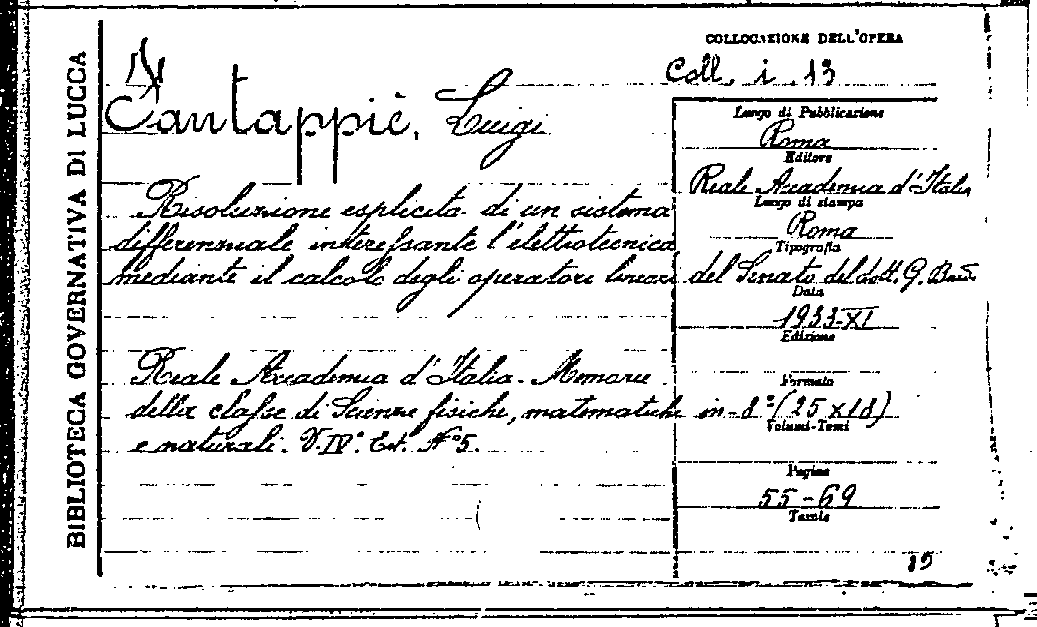 BIBLIOTECA GOVERNATIVA DI LUCCA
COLLOCAZIONE DELL'OPERA
Coll. i. 13
Fantappiè, Luigi
Risoluzione esplicita di un sistema
differenziale interessante l'elettrotecnica
mediante il calcolo degli operatori lineari
Reale Accademia d'Italia. Memorie
della classe di Scienze fisiche, matematiche
e naturali. V. IV°. Est. N° 5.
Luogo di Pubblicazione
Roma
Editore
Reale Accademia d'Italia
Luogo di stampa
Roma
Tipografia
del Senato del dott. G. Bardi
Data
1933-XI
Edizione
Formato
in-8° (25 x 18)
Volumi-Tomi
Pagine
55-69
Tavole